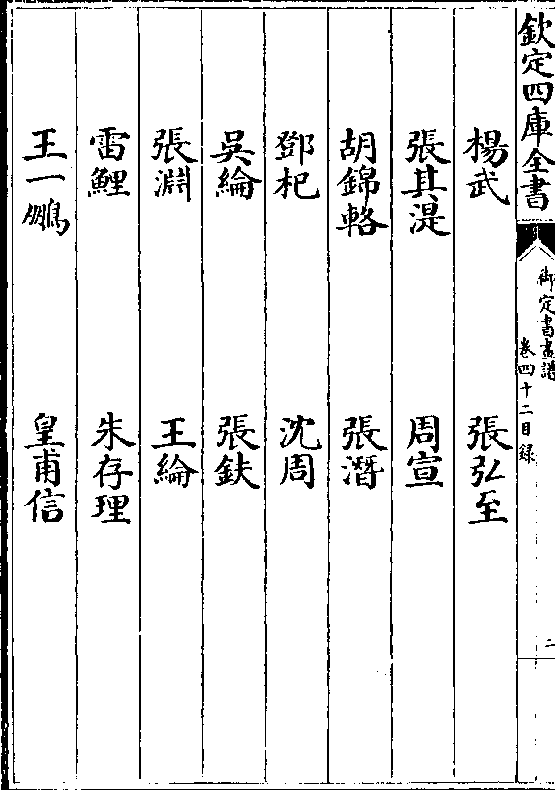 欽定四庫全書
御定書畫譜
卷四十二目録
二
楊武 張弘至
張其湜 周宣
胡錦輅 張潛
鄧杞 沈周
吳綸 張鈇
張淵 王綸
雷鯉 朱存理
王一鵬 皇甫信